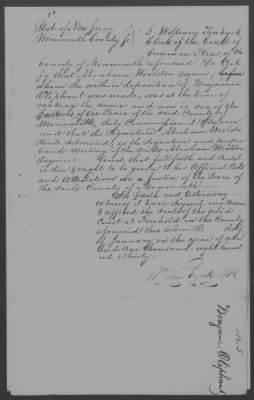 State of New Jersey
Monmouth County ss. I William Tenbrook
Clerk of the Court of
Common Pleas of the
County of Monmouth aforesaid Do Certi
fy that Abraham Esquire before
whom the within deposition of Benjamin
Oliphant was made, was at the time of
making the same and now is one of the
Justices of the Peace of the said County of
Monmouth, duly Commissioned & Sworn
and that the Signature Abraham
thereto Subscribed, is the Signature and proper
hand Writing of the said Abraham
Esquire And that full faith and Credit
is due & ought to be given to his Official Acts
and Attestations as a Justice of the Peace of
the said County of Monmouth
In faith and testimony
whereof I have signed my Name
& affixed the Seal of the said
Court at Freehold in the County
aforesaid this day
of January in the year of our
Lord One thousand eight hund
red & thirty
Benjamin Oliphant